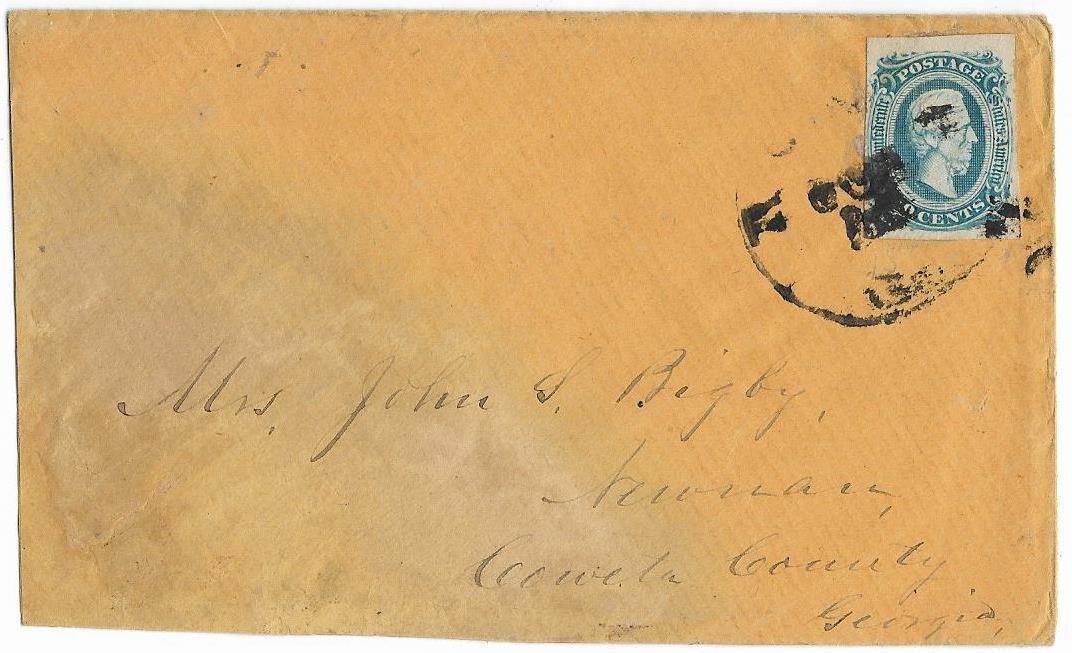 POSTAGE
Confederate States of America
CENTS
Mrs, John S. Bigby,
Newnan,
Coweta County
Georgia,